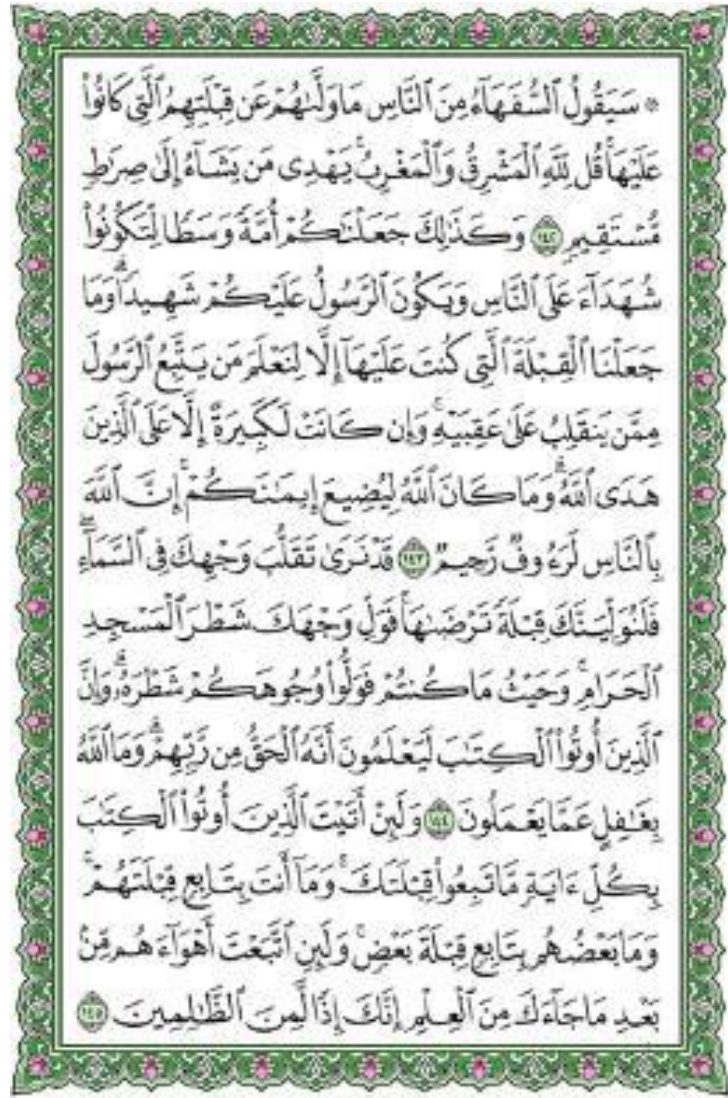 ۞ سَيَقُولُ ٱلسُّفَهَآءُ مِنَ ٱلنَّاسِ مَا وَلَّىٰهُمْ عَن قِبْلَتِهِمُ ٱلَّتِى كَانُوا۟
عَلَيْهَا ۚ قُل لِّلَّهِ ٱلْمَشْرِقُ وَٱلْمَغْرِبُ ۚ يَهْدِى مَن يَشَآءُ إِلَىٰ صِرَٰطٍ
مُّسْتَقِيمٍ ١٤٢ وَكَذَٰلِكَ جَعَلْنَٰكُمْ أُمَّةً وَسَطًا لِّتَكُونُوا۟
شُهَدَآءَ عَلَى ٱلنَّاسِ وَيَكُونَ ٱلرَّسُولُ عَلَيْكُمْ شَهِيدًا ۗ وَمَا
جَعَلْنَا ٱلْقِبْلَةَ ٱلَّتِى كُنتَ عَلَيْهَآ إِلَّا لِنَعْلَمَ مَن يَتَّبِعُ ٱلرَّسُولَ
مِمَّن يَنقَلِبُ عَلَىٰ عَقِبَيْهِ ۚ وَإِن كَانَتْ لَكَبِيرَةً إِلَّا عَلَى ٱلَّذِينَ
هَدَى ٱللَّهُ ۗ وَمَا كَانَ ٱللَّهُ لِيُضِيعَ إِيمَٰنَكُمْ ۚ إِنَّ ٱللَّهَ
بِٱلنَّاسِ لَرَءُوفٌ رَّحِيمٌ ١٤٣ قَدْ نَرَىٰ تَقَلُّبَ وَجْهِكَ فِى ٱلسَّمَآءِ ۖ
فَلَنُوَلِّيَنَّكَ قِبْلَةً تَرْضَىٰهَا ۚ فَوَلِّ وَجْهَكَ شَطْرَ ٱلْمَسْجِدِ
ٱلْحَرَامِ ۚ وَحَيْثُ مَا كُنتُمْ فَوَلُّوا۟ وُجُوهَكُمْ شَطْرَهُۥ ۗ وَإِنَّ
ٱلَّذِينَ أُوتُوا۟ ٱلْكِتَٰبَ لَيَعْلَمُونَ أَنَّهُ ٱلْحَقُّ مِن رَّبِّهِمْ ۗ وَمَا ٱللَّهُ
بِغَٰفِلٍ عَمَّا يَعْمَلُونَ ١٤٤ وَلَئِنْ أَتَيْتَ ٱلَّذِينَ أُوتُوا۟ ٱلْكِتَٰبَ
بِكُلِّ ءَايَةٍ مَّا تَبِعُوا۟ قِبْلَتَكَ ۚ وَمَآ أَنتَ بِتَابِعٍ قِبْلَتَهُمْ ۚ
وَمَا بَعْضُهُم بِتَابِعٍ قِبْلَةَ بَعْضٍ ۚ وَلَئِنِ ٱتَّبَعْتَ أَهْوَآءَهُم مِّنۢ
بَعْدِ مَا جَآءَكَ مِنَ ٱلْعِلْمِ إِنَّكَ إِذًا لَّمِنَ ٱلظَّٰلِمِينَ ١٤٥